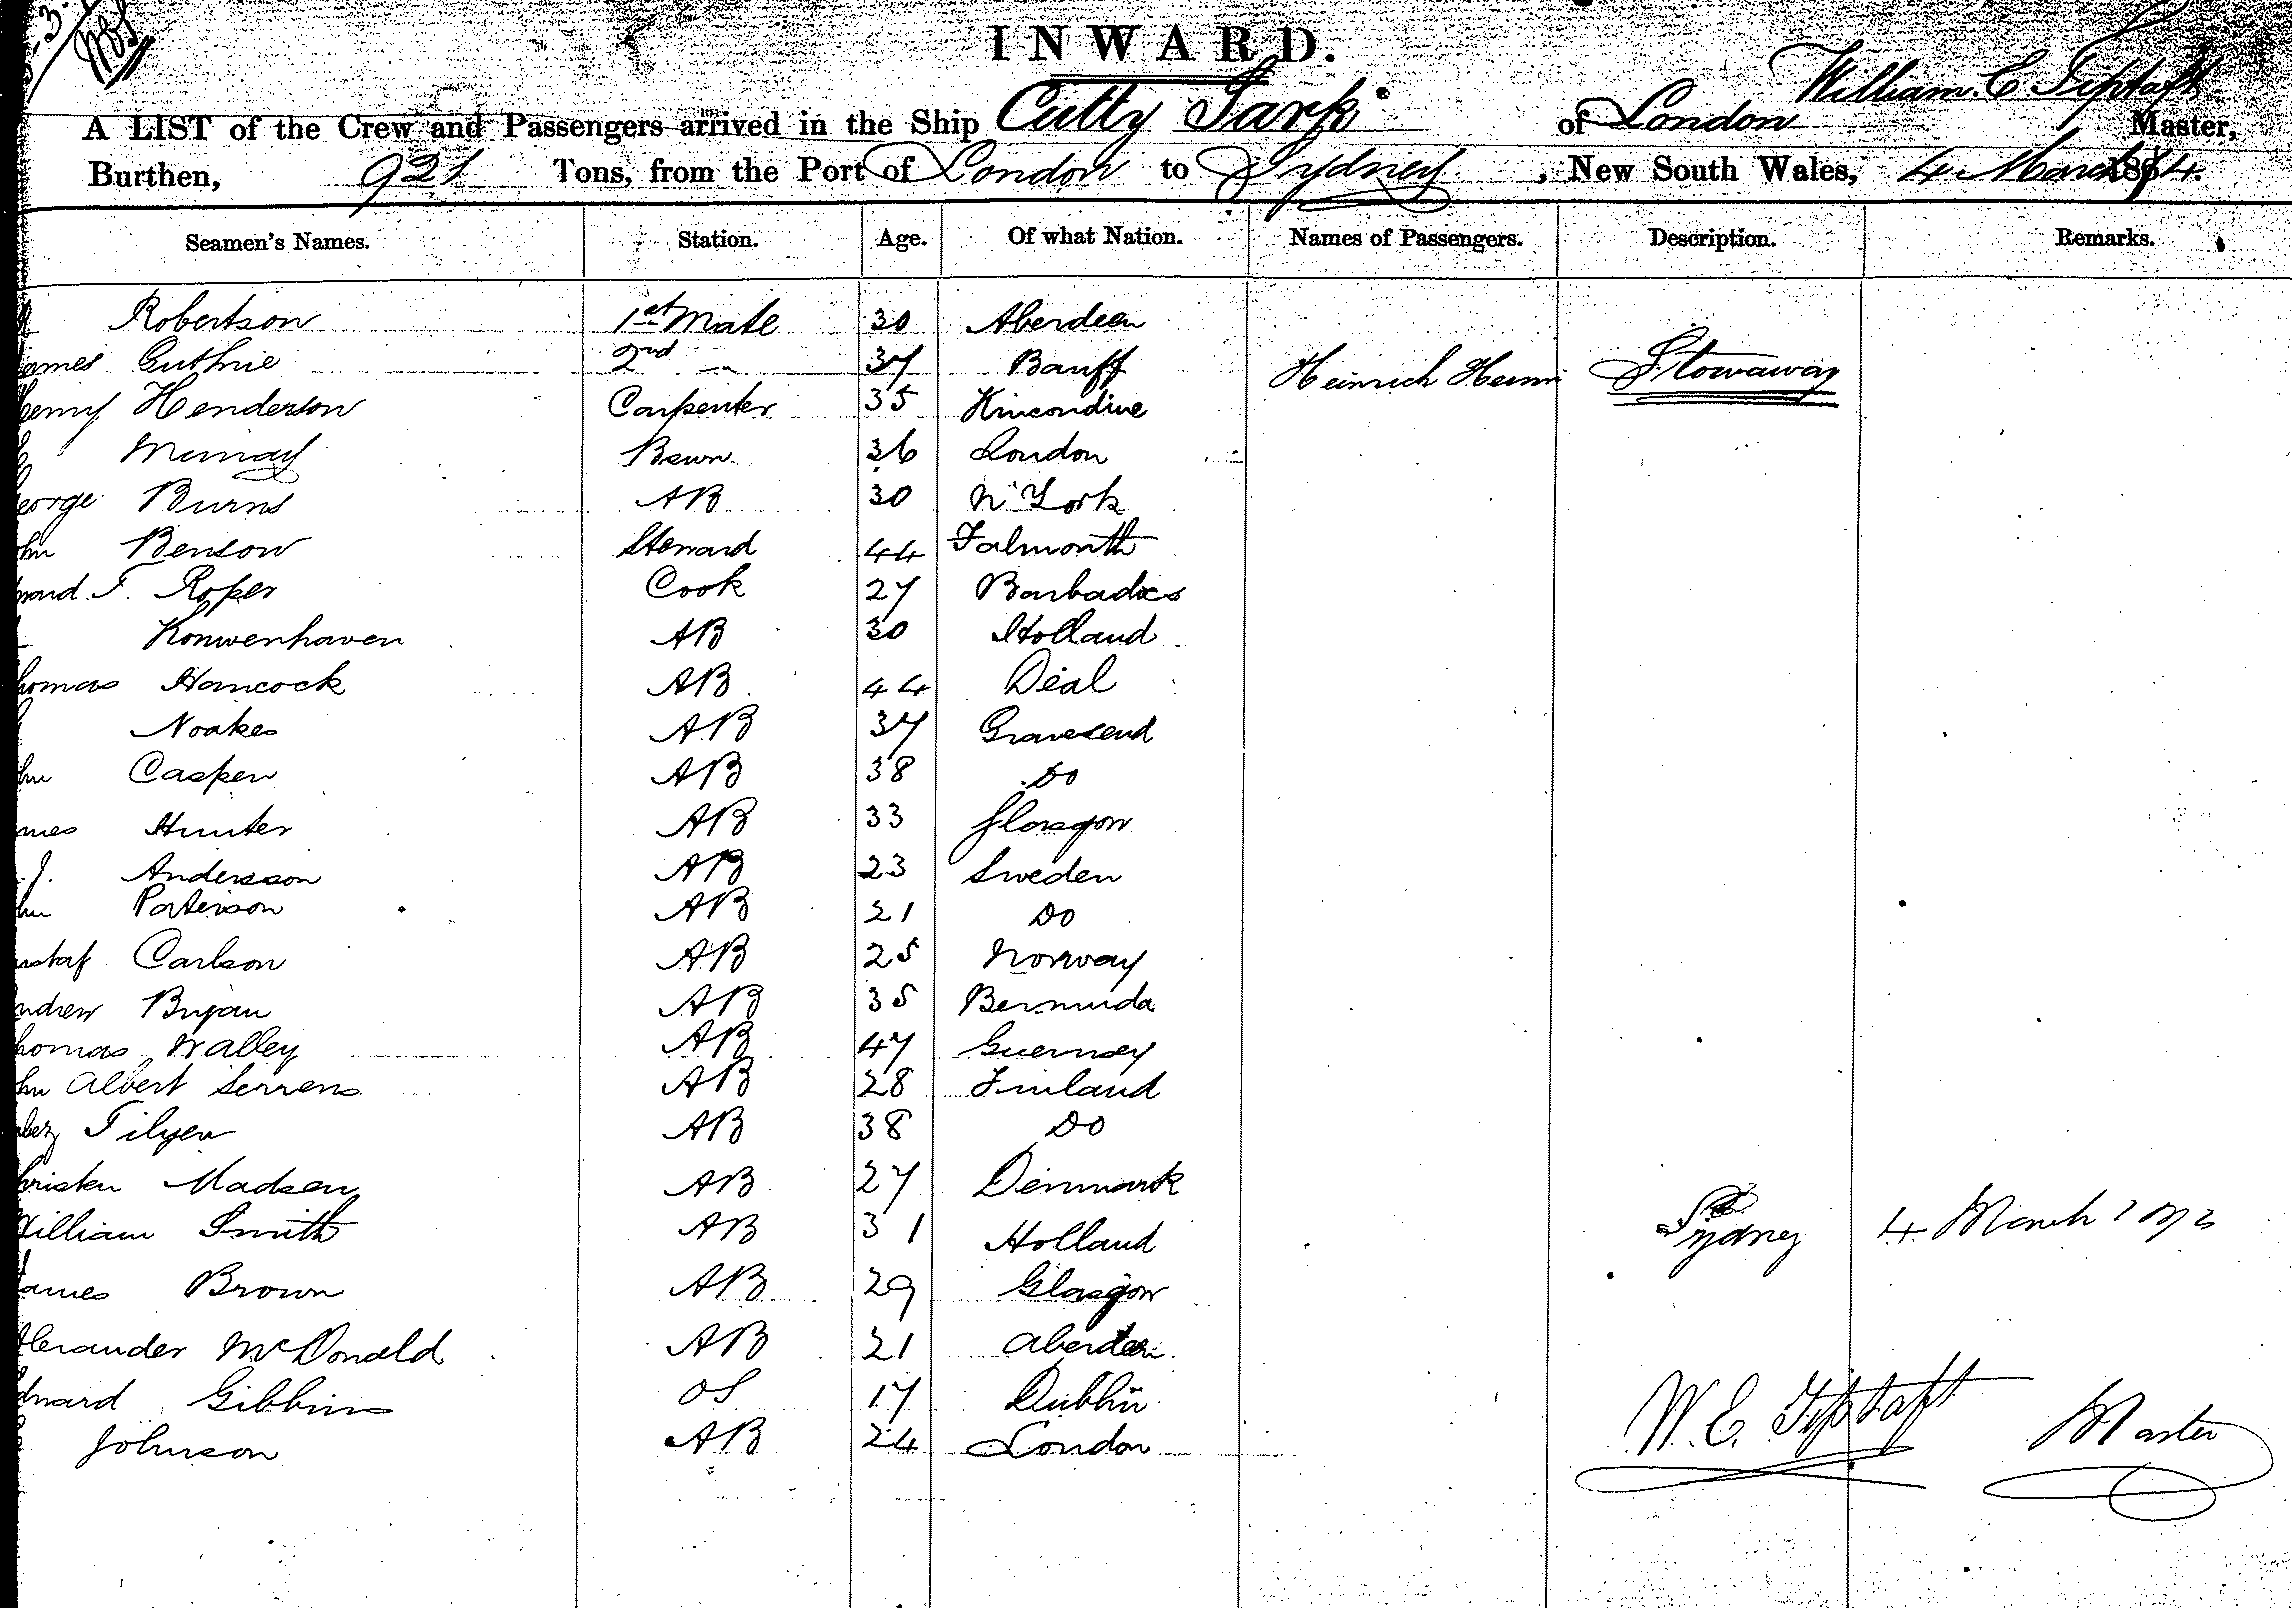 INWARD.
William E Tiptaft
A LIST of the Crew and Passengers arrived in the Ship Cutty Sark of London Master,
Burthen, 921 Tons, from the Port of London to Sydney, New South Wales, 4 March 1874.
Seamen's Names. Station. Age. Of what Nation. Names of Passengers. Description. Remarks.
Robertson 1st Mate 30 Aberdeen
ames Guthrie 2nd 37 Banff Heinrich Stowaway
enry Henderson Carpenter 35 Kincordine
Murray 36 London
eorge Burns AB 30 N York
ohn Benson Steward 44 Falmouth
ward T. Roper Cook 27 Barbadoes
Konwenhaven AB 30 Holland
homas Hancock AB 44 Deal
Noakes AB 37 Gravesend
ohn Casper AB 38 Do
mes Hunter AB 33 Glasgow
J. Andersson AB 23 Sweden
hn Paterson AB 21 Do
ustaf Carlson AB 25 Norway
ndrew Bryan AB 35 Bermuda
homas Walley AB 47 Guernsey
hn Albert Serrens AB 28 Finland
bez Tilyer AB 38 Do
hristen Madsen AB 27 Denmark
William Smith AB 31 Holland Sydney 4 March
ames Brown AB 29 Glasgow
lexander McDonald AB 21 Aberdeen
dward Gibbins OS 17 Dublin W. E. Tiptaft Master
Johnson AB 24 London